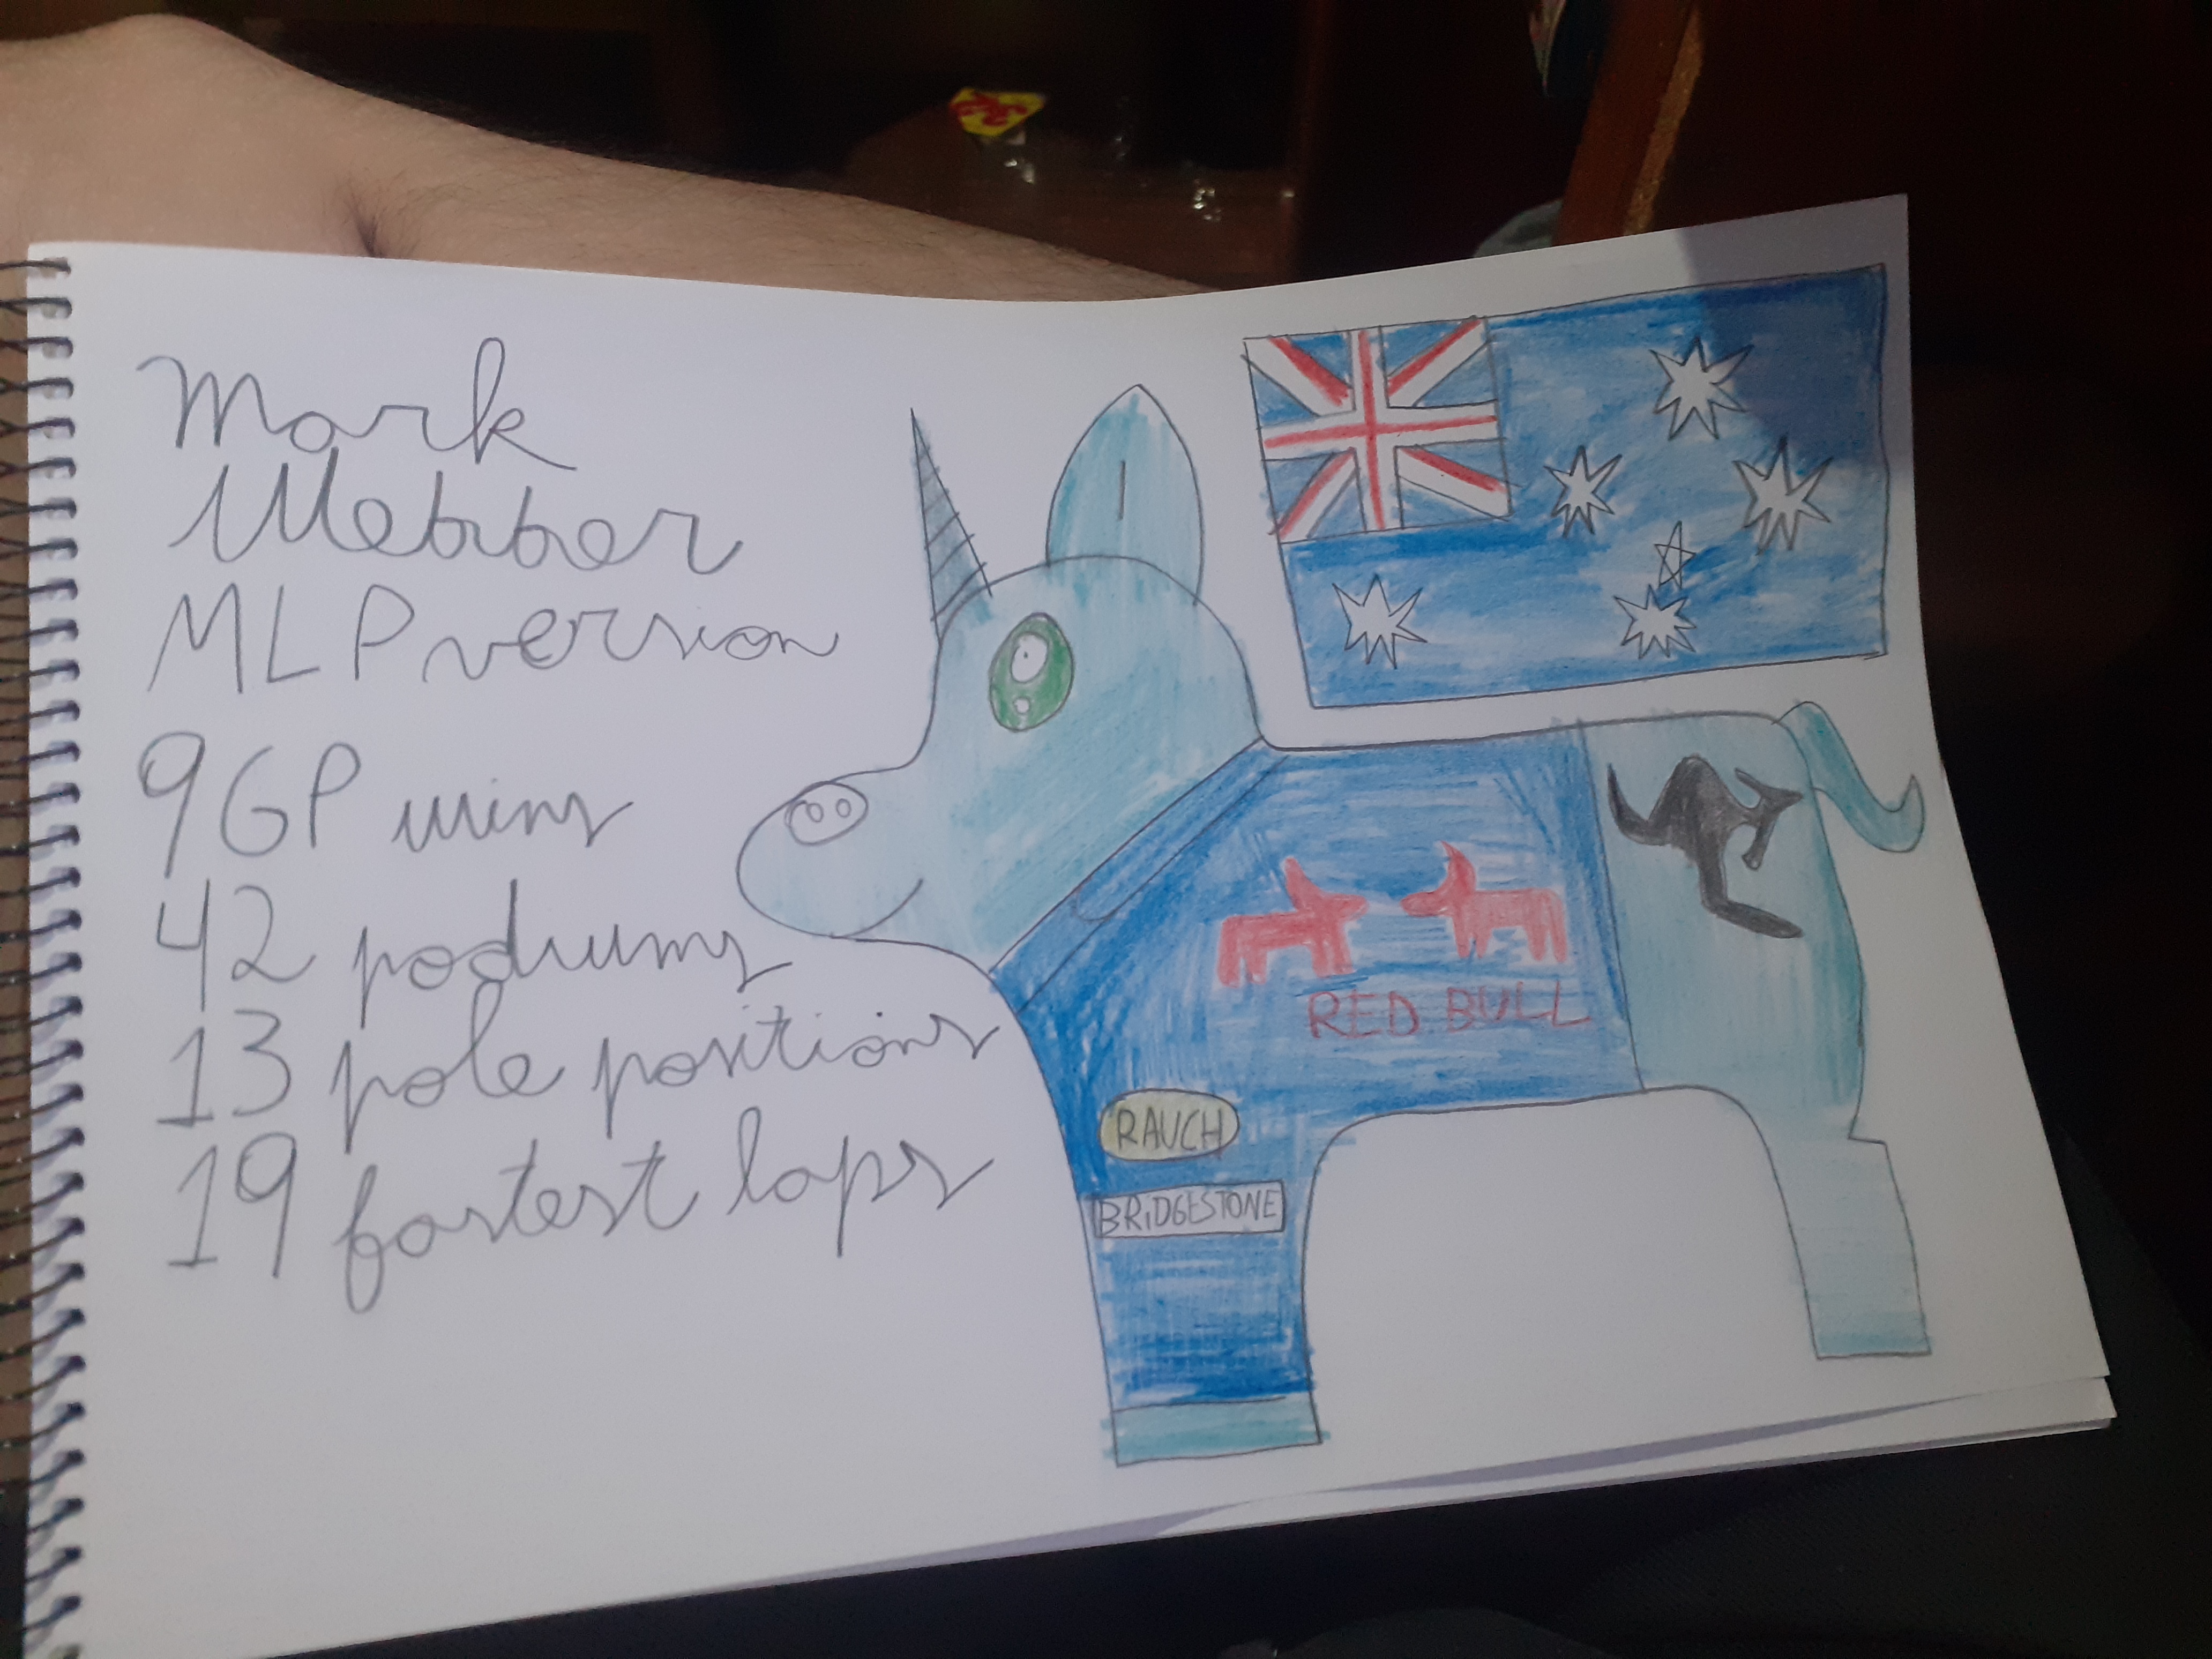 Mark
Webber
MLP version
9 GP wins
42 podiums
13 pole positions
19 fastest laps
RED BULL
RAUCH
BRIDGESTONE